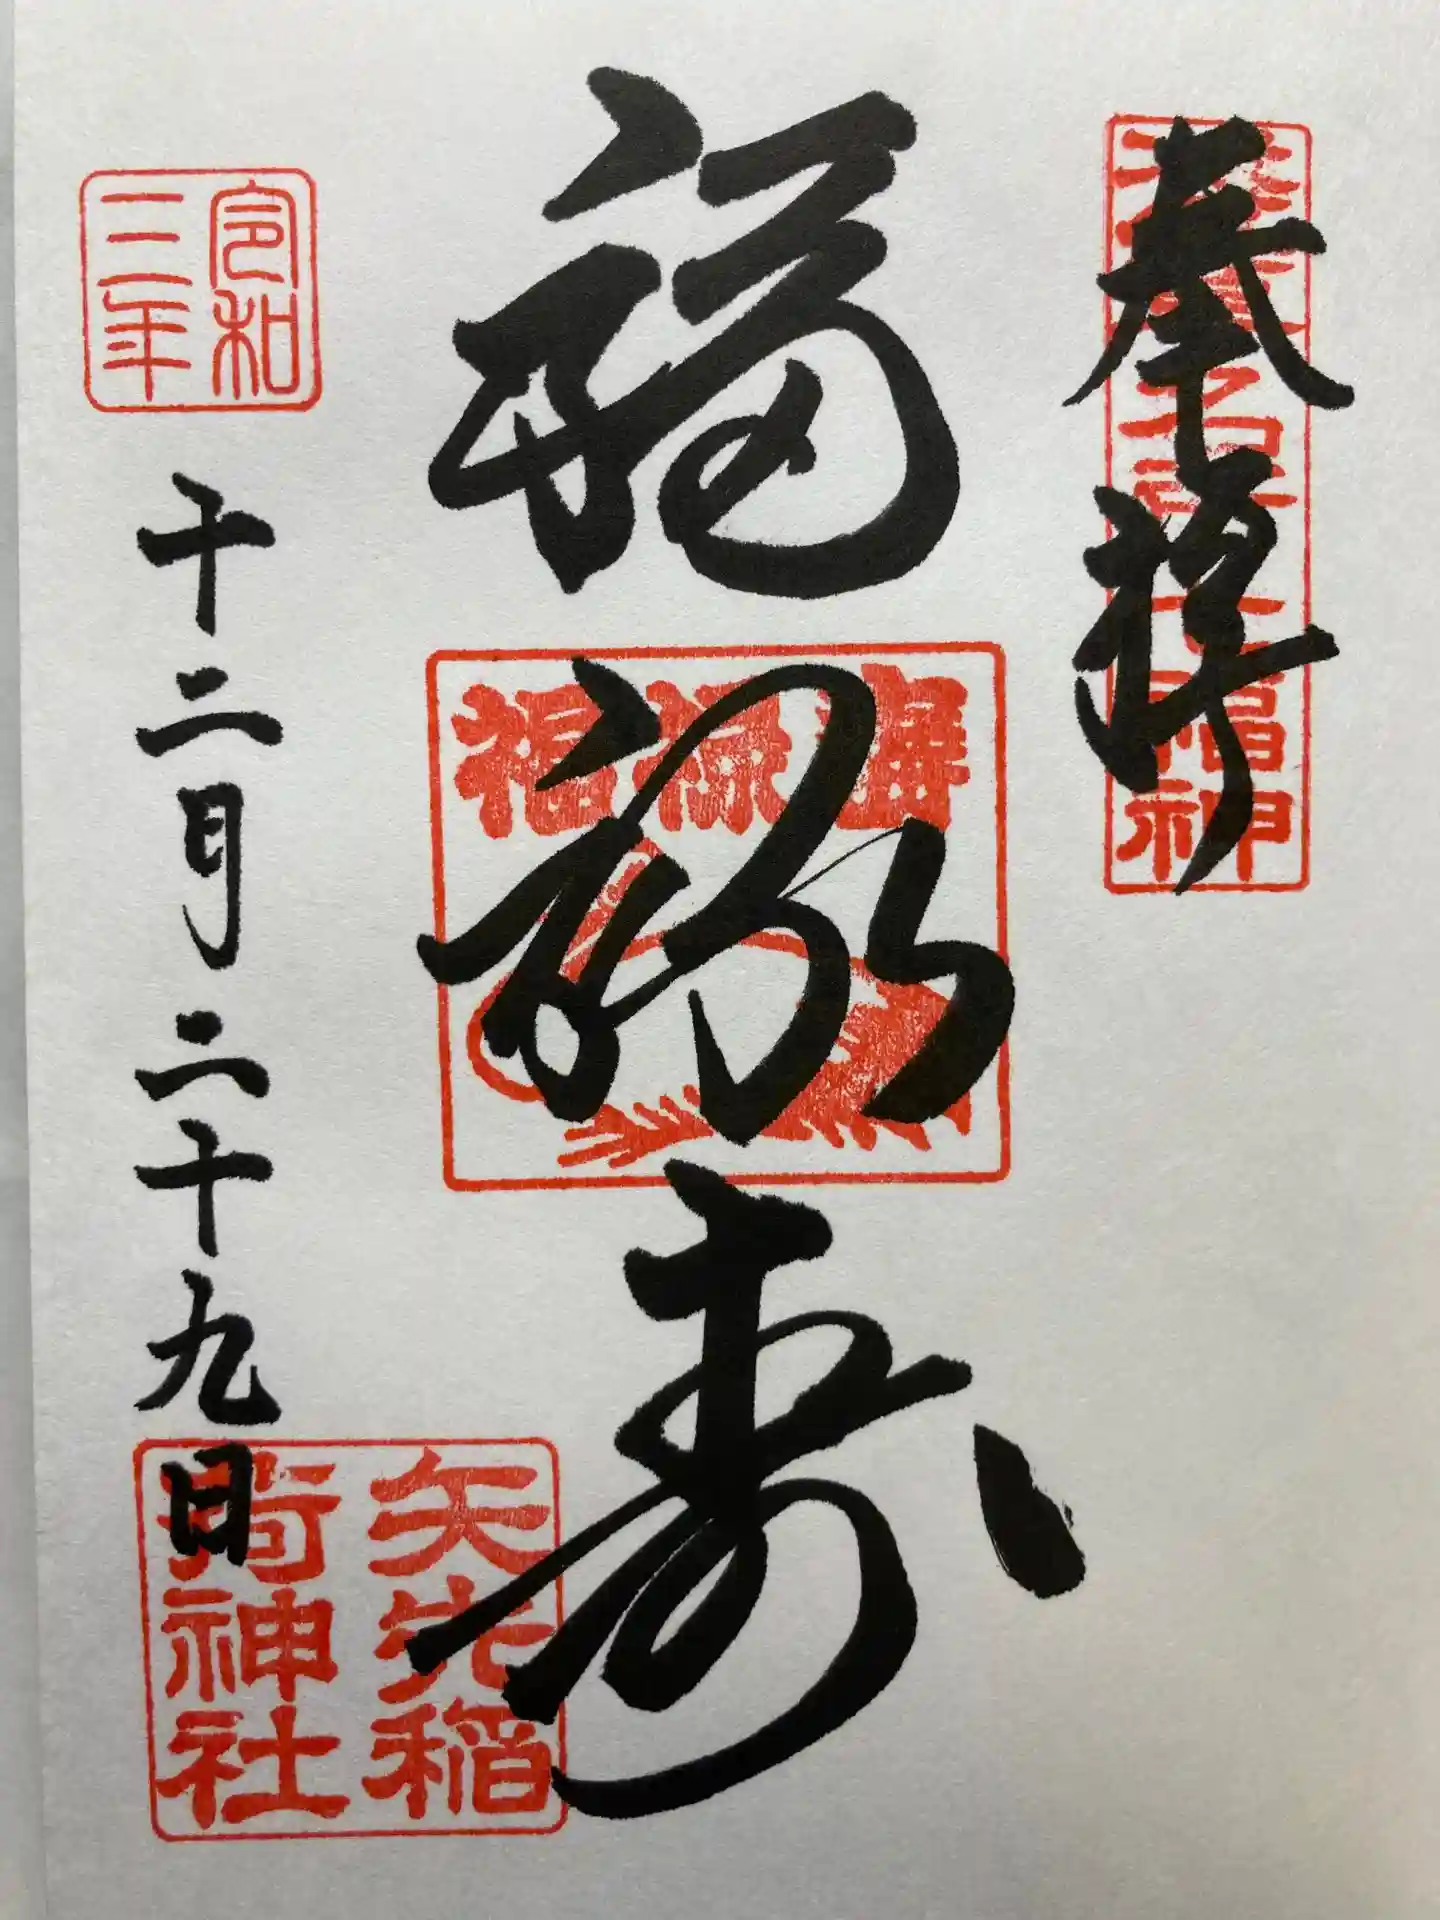 奉拝
浅草名所七福神
福禄寿
福禄壽
令和
三年
十二月二十九日
矢先稲
荷神社